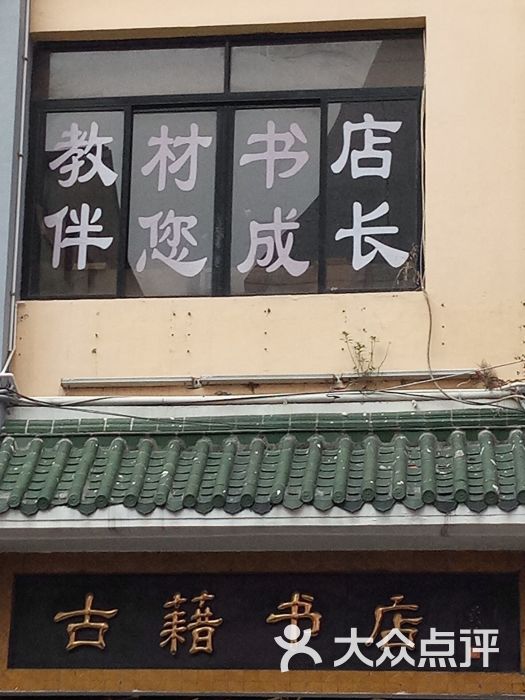 教材书店
伴您成长
古藉书店
大众点评